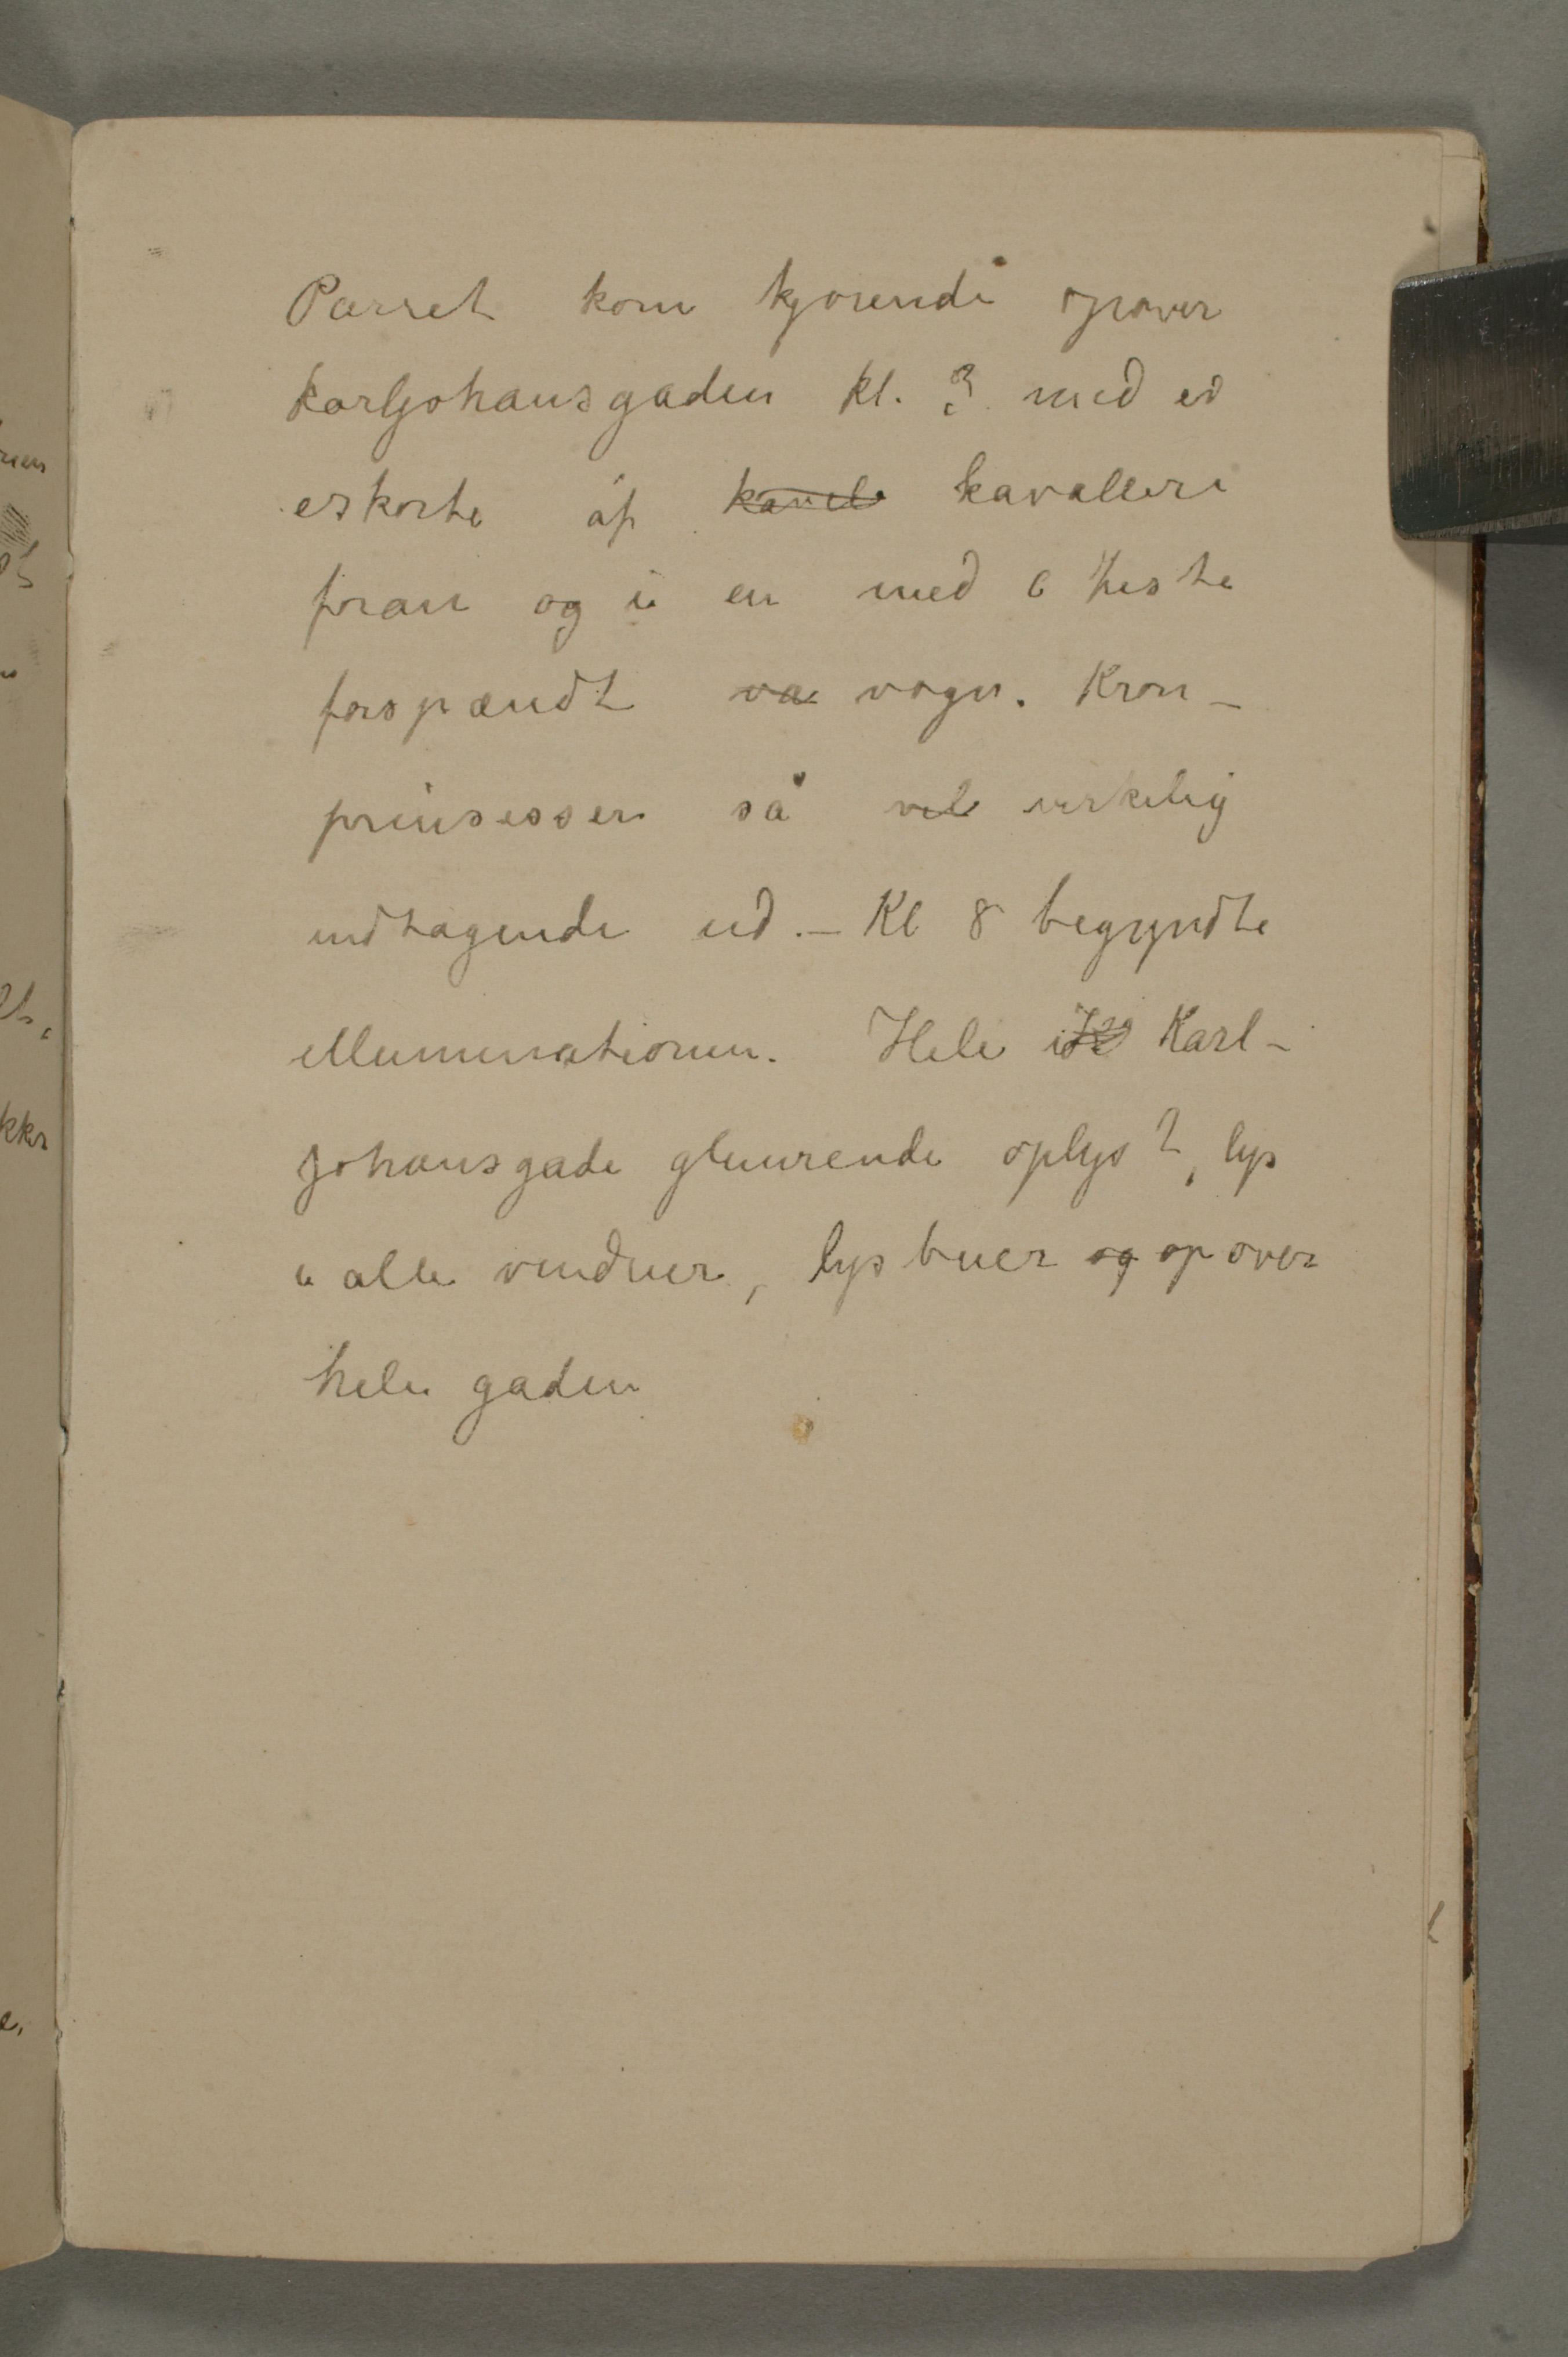 Parret kom kjørende opover
Karljohansgaden kl. 3 med ed
eskorte af kavele kavalleri
foran og i en med 6 heste
forspændt va vogn. Kron-
prinsessen så vel virkelig
indtagende ud. – Kl 8 begyndte
illuminationen. Hele Karl-
johansgade glimrende oplyst, lys
i alle vinduer, lysbuer og opover
hele gaden